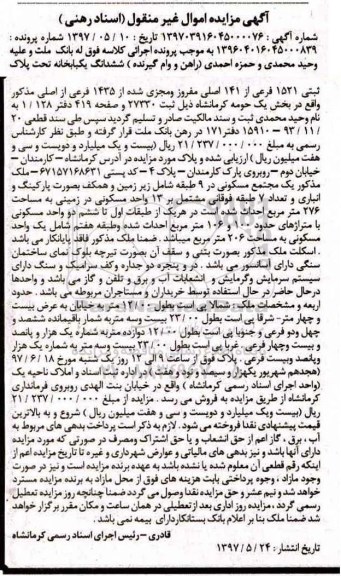 آگهی مزایده اموال غیر منقول (اسناد رهنی)
شماره آگهی : ۱۳۹۷۰۳۹۱۶۰۴۵۰۰۰۰۷۶ تاریخ : ۱۰ / ۰۵ / ۱۳۹۷ شماره پرونده :
۱۳۹۶۰۴۰۱۶۰۴۵۰۰۰۸۳۹ به موجب پرونده اجرائی کلاسه فوق له بانک ملت و علیه
وحید محمدی و حمزه احمدی (راهن و وام گیرنده ) ششدانگ یکبابخانه تحت پلاک
ثبتی ۱۵۲۱ فرعی از ۱۴۱ اصلی مفروز ومجزی شده از ۱۴۳۵ فرعی از اصلی مذکور
واقع در بخش یک حومه کرمانشاه ذیل ثبت ۲۷۳۳۰ و صفحه ۴۱۹ دفتر ۱۲۸ / ۱ به
نام وحید محمدی ثبت و سند مالکیت صادر و تسلیم گردید سپس طی سند قطعی ۲۰
/ ۱۱ / ۹۳ - ۱۵۹۱۰ دفتر۱۷۱ در رهن بانک ملت قرار گرفته و طبق نظر کارشناس
رسمی به مبلغ ۰۰۰ / ۰۰۰ / ۲۳۷ / ۲۱ ریال (بیست و یک میلیارد و دویست و سی و
هفت میلیون ریال ) ارزیابی شده و پلاک مورد مزایده در آدرس کرمانشاه - کارمندان -
خیابان دوم - روبروی پارک کارمندان - پلاک ۴ - کد پستی ۶۷۱۵۷۱۶۸۶۳۱ - ملک
مذکور یک مجتمع مسکونی در ۹ طبقه شامل زیر زمین و همکف بصورت پارکینگ و
انباری و تعداد ۷ طبقه فوقانی مشتمل بر ۱۳ واحد مسکونی در زمینی به مساحت
۲۷۶ متر مربع احداث شده است در هریک از طبقات اول تا ششم دو واحد مسکونی
با متراژهای حدود ۱۰۰ و ۱۰۶ متر مربع احداث شده وطبقه هفتم شامل یک واحد
مسکونی به مساحت ۲۰۶ متر مربع میباشد . ضمنا ملک مذکور فاقد پایانکار می باشد
. اسکلت ملک مذکور بصورت بتنی و سقف آن بصورت تیرچه بلوک نمای ساختمان
سنگی دارای آسانسور می باشد . در و پنجره دو جداره وکف سرامیک و سنگ دارای
سیستم سرمایش وگرمایش و انشعابات آب و برق و تلفن و گاز می باشد و واحدها
درحال حاضر در حال استفاده توسط خریداران و مستاجران مربوطه می باشد . حدود
اربعه و مشخصات ملک : شمالا پی است بطول ۱۲/۰۰ متر به خیابان به عرض بیست
و چهار متر- شرقا پی است بطول ۲۳/۰۰ بیست وسه متربه شمار باقیمانده ششصد و
چهل ودو فرعی و جنوبا پی است بطول ۱۲/۰۰ دوازده متربه شماره یک هزار و پانصد
و بیست وچهار فرعی . غربا پی است بطول ۲۳/۰۰ بیست وسه متر به شماره یک هزار
وپانصد وبیست فرعی . پلاک فوق از ساعت ۹ الی ۱۲ روز یک شنبه مورخ ۱۸ / ۶ / ۹۷
(هجدهم شهریور یکهزار و سیصد و نود و هفت )در اداره ثبت اسناد و املاک ناحیه یک
(واحد اجرای اسناد رسمی کرمانشاه ) واقع در خیابان بنت الهدی روبروی فرمانداری
کرمانشاه از طریق مزایده به فروش می رسد . مزایده از مبلغ ۰۰۰ / ۰۰۰ / ۲۳۷ / ۲۱
ریال (بیست ویک میلیارد و دویست و سی و هفت میلیون ریال ) شروع و به بالاترین
قیمت پیشنهادی نقدا فروخته می شود . لازم به ذکر است پرداخت بدهی های مربوط به
آب ، برق ، گاز اعم از حق انشعاب و یا حق اشتراک ومصرف در صورتی که مورد مزایده
دارای آنها باشد و نیز بدهی های مالیاتی و عوارض شهرداری و غیره تا تاریخ مزایده اعم از
اینکه رقم قطعی آن معلوم شده یا نشده باشد به عهده برنده مزایده است و نیز در صورت
وجود مازاد ، وجوه پرداختی بابت هزینه های فوق از محل مازاد به برنده مزایده مسترد
خواهد شد و نیم عشر و حق مزایده نقدا وصول می گردد ضمنا چنانچه روز مزایده تعطیل
رسمی گردد ، مزایده روز اداری بعد از تعطیلی در همان ساعت و مکان مقرر برگزار خواهد
شد ضمنا ملک بنا بر اعلام بانک بستانکار دارای بیمه نمی باشد .
قادری - رئیس اجرای اسناد رسمی کرمانشاه
تاریخ انتشار : ۲۴ / ۵ / ۱۳۹۷